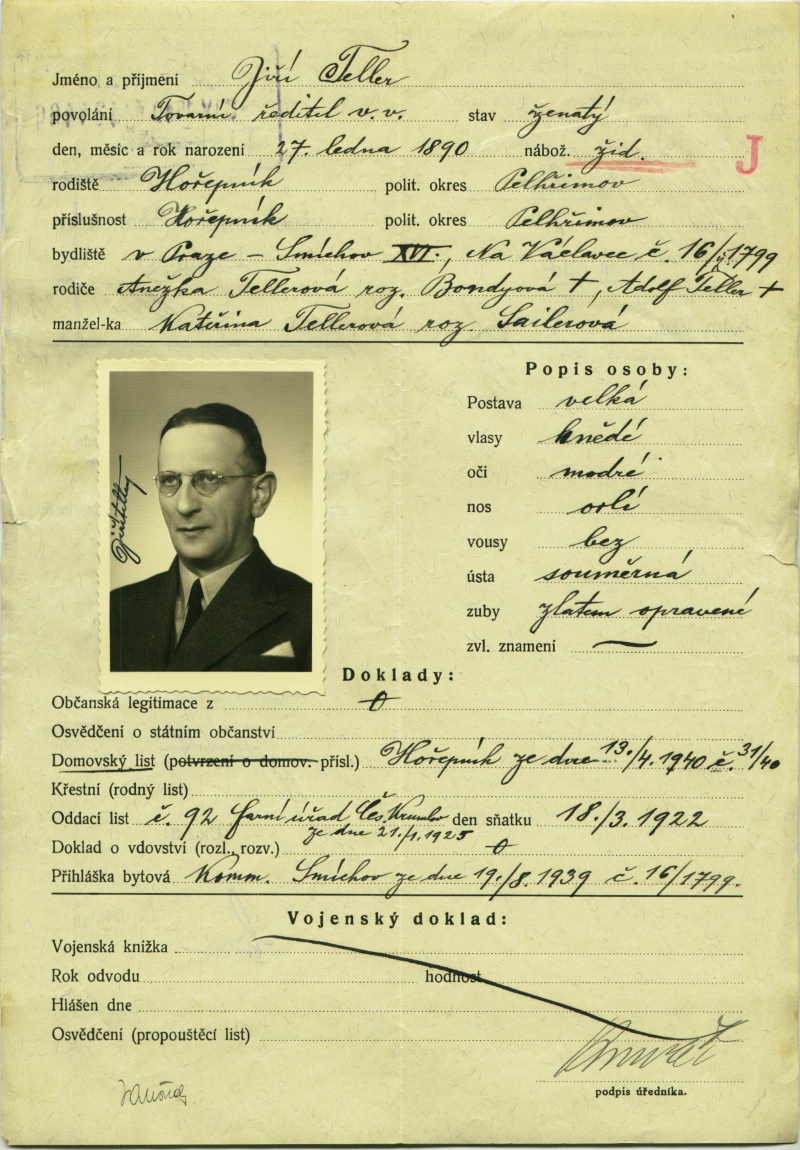 Jméno a příjmení Jiří Teller
povolání Tovární ředitel v. v. stav ženatý
den, měsíc a rok narození 27. ledna 1890 nábož. žid. J
rodiště Hořepník polit. okres Pelhřimov
příslušnost Hořepník polit. okres Pelhřimov
bydliště v Praze – Smíchov XVI., Na Václavce č. 16/1799
rodiče Anežka Tellerová roz. Bondyová +, Adolf Teller +
manžel-ka Kateřina Tellerová roz. Sailerová
Popis osoby:
Postava velká
vlasy hnědé
oči modré
nos orlí
vousy bez
ústa souměrná
zuby zlatem opravené
zvl. znamení —
Doklady:
Občanská legitimace z 0
Osvědčení o státním občanství
Domovský list (potvrzení o domov. přísl.) Hořepník ze dne 13./4. 1940 č. 31/40
Křestní (rodný list)
Oddací list č. 92 farní úřad Čes. Krumlov den sňatku 18./3. 1922
ze dne 21./1. 1925
Doklad o vdovství (rozl., rozv.) 0
Přihláška bytová Komm. Smíchov ze dne 19./8. 1939 č. 16/1799.
Vojenský doklad:
Vojenská knížka
Rok odvodu hodnost
Hlášen dne
Osvědčení (propouštěcí list)
podpis úředníka.